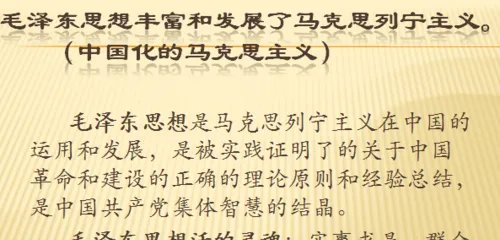 毛泽东思想丰富和发展了马克思列宁主义。
（中国化的马克思主义）
毛泽东思想是马克思列宁主义在中国的
运用和发展，是被实践证明了的关于中国
革命和建设的正确的理论原则和经验总结，
是中国共产党集体智慧的结晶。
毛泽东思想活的灵魂：实事求是、群众